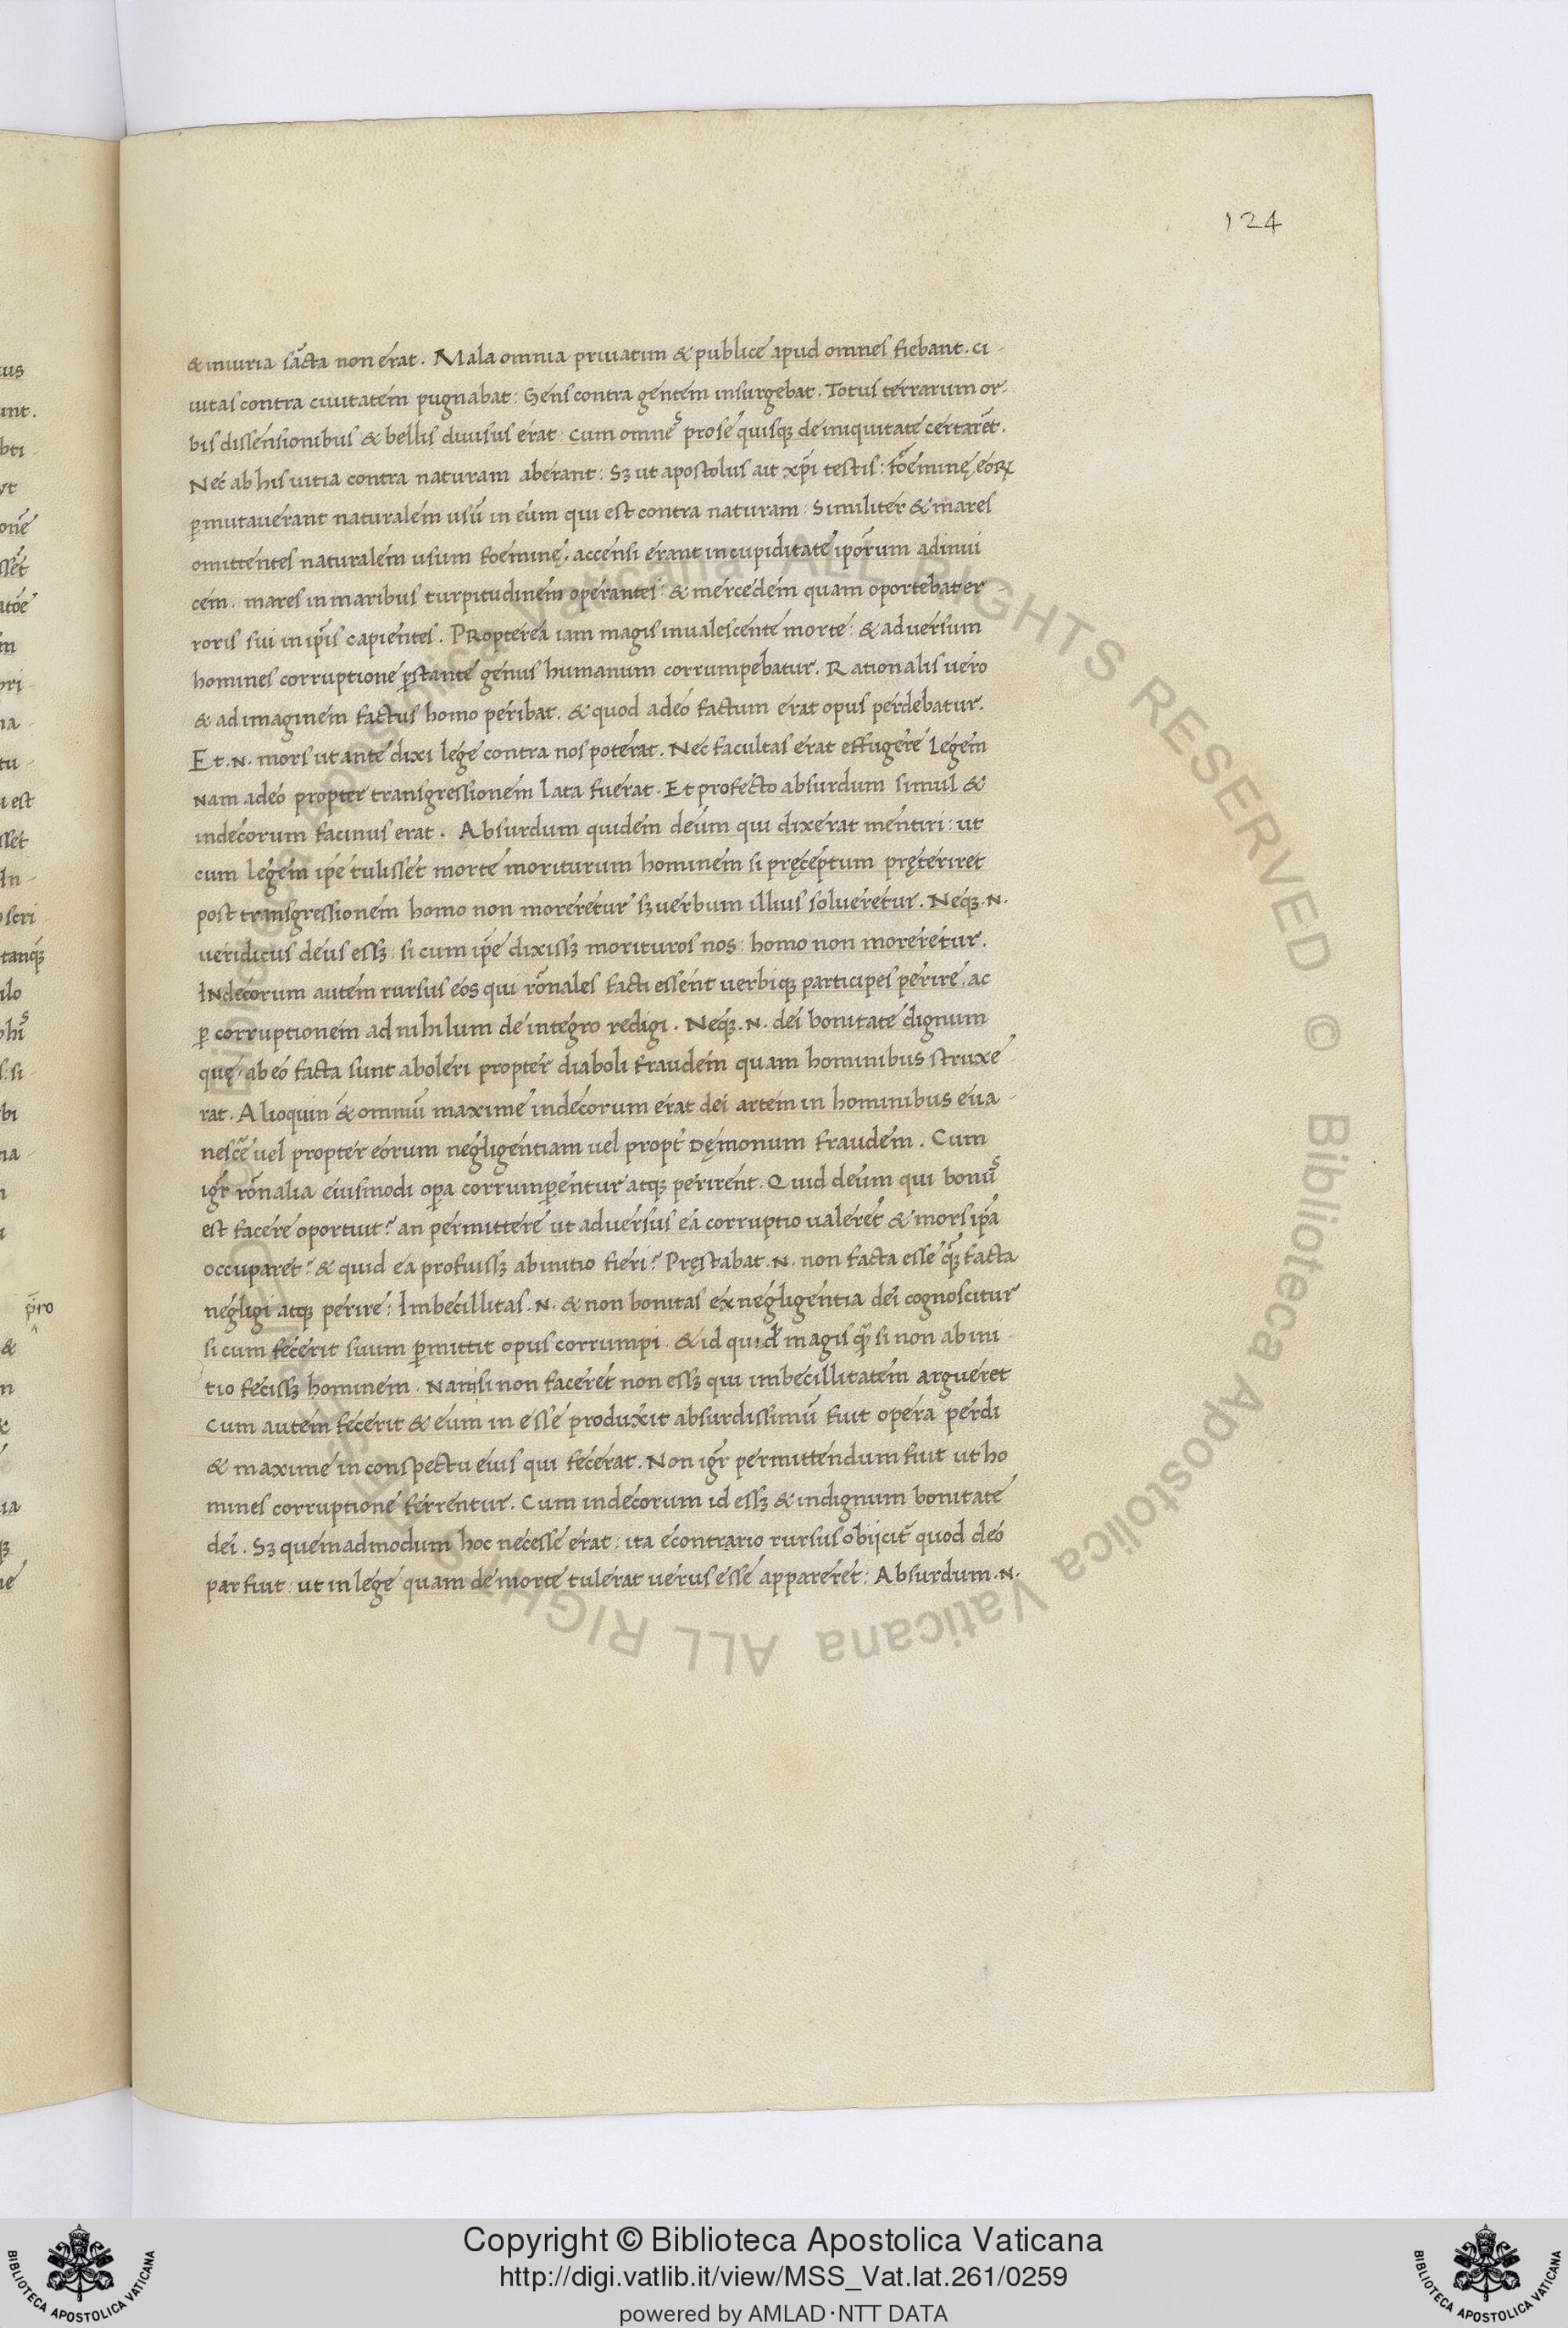 124
& iniuria sãcta non erat. Mala omnia priuatim & publice apud omnes fiebant. ci-
uitas contra ciuitatem pugnabat: Gens contra gentem insurgebat. Totus terrarum or-
bis dissensionibus & bellis diuisus erat: cum omnes pro se quisq; de iniquitate certaret.
Nec ab his uitia contra naturam aberant: Sȝ ut apostolus ait xp̄i testis: foeminę eoꝝ
ꝑmutauerant naturalem usũ in eum qui est contra naturam: Similiter & mares
omittentes naturalem usum foeminę, accensi erant in cupiditate ip̄orum adinui
cem. mares in maribus turpitudinem operantes: & mercedem quam oportebat er-
roris sui in ip̄is capientes. Propterea iam magis inualescente morte: & aduersum
homines corruptione p̱stante genus humanum corrumpebatur. Rationalis uero
& ad imaginem factus homo peribat. & quod a deo factum erat opus perdebatur.
Et .N. mors ut ante dixi lege contra nos poterat. Nec facultas erat effugere legem
nam a deo propter transgressionem lata fuerat. Et profecto absurdum simul &
indecorum facinus erat. Absurdum quidem deum qui dixerat mentiri: ut
cum legem ip̄e tulisset morte moriturum hominem si pręceptum pręteriret
post transgressionem homo non moreretur sȝ uerbum illius solueretur. Neq; .N.
ueridicus deus essȝ: si cum ip̄e dixissȝ morituros nos: homo non moreretur.
Indecorum autem rursus eos qui rõnales facti essent uerbiq; participes perire, ac
ꝑ corruptionem ad nihilum de integro redigi. Neq; .N. dei bonitate dignum
quę ab eo facta sunt aboleri propter diaboli fraudem quam hominibus struxe
rat. Alioquin & omniũ maxime indecorum erat dei artem in hominibus eua-
nescẽ uel propter eorum negligentiam uel propt̃ dęmonum fraudem. Cum
igr̃ rõnalia eiusmodi oꝑa corrumꝑentur atq; perirent. Quid deum qui bonus
est facere oportuit? an permittere ut aduersus ea corruptio ualeret & mors ip̄a
occuparet? & quid ea profuissȝ ab initio fieri? Pręstabat .N. non facta esse q̃ȝ facta
negligi atq; perire: Imbecillitas .N. & non bonitas ex negligentia dei cognoscitur
si cum fecerit suum ꝑmittit opus corrumpi. & id quidẽ magis q̃ȝ si non ab ini-
tio fecissȝ hominem. Nam si non faceret non essȝ qui imbecillitatem argueret
cum autem fecerit & eum in esse produxit absurdissimũ fuit opera perdi
& maxime in conspectu eius qui fecerat. Non igr̃ permittendum fuit ut ho
mines corruptione ferrentur. Cum indecorum id essȝ & indignum bonitate
dei. Sȝ quemadmodum hoc necesse erat: ita e contrario rursus obijcit̃ quod deo
par fuit: ut in lege quam de morte tulerat uerus esse appareret: Absurdum .N.
p̃ro
Copyright © Biblioteca Apostolica Vaticana
http://digi.vatlib.it/view/MSS_Vat.lat.261/0259
powered by AMLAD·NTT DATA